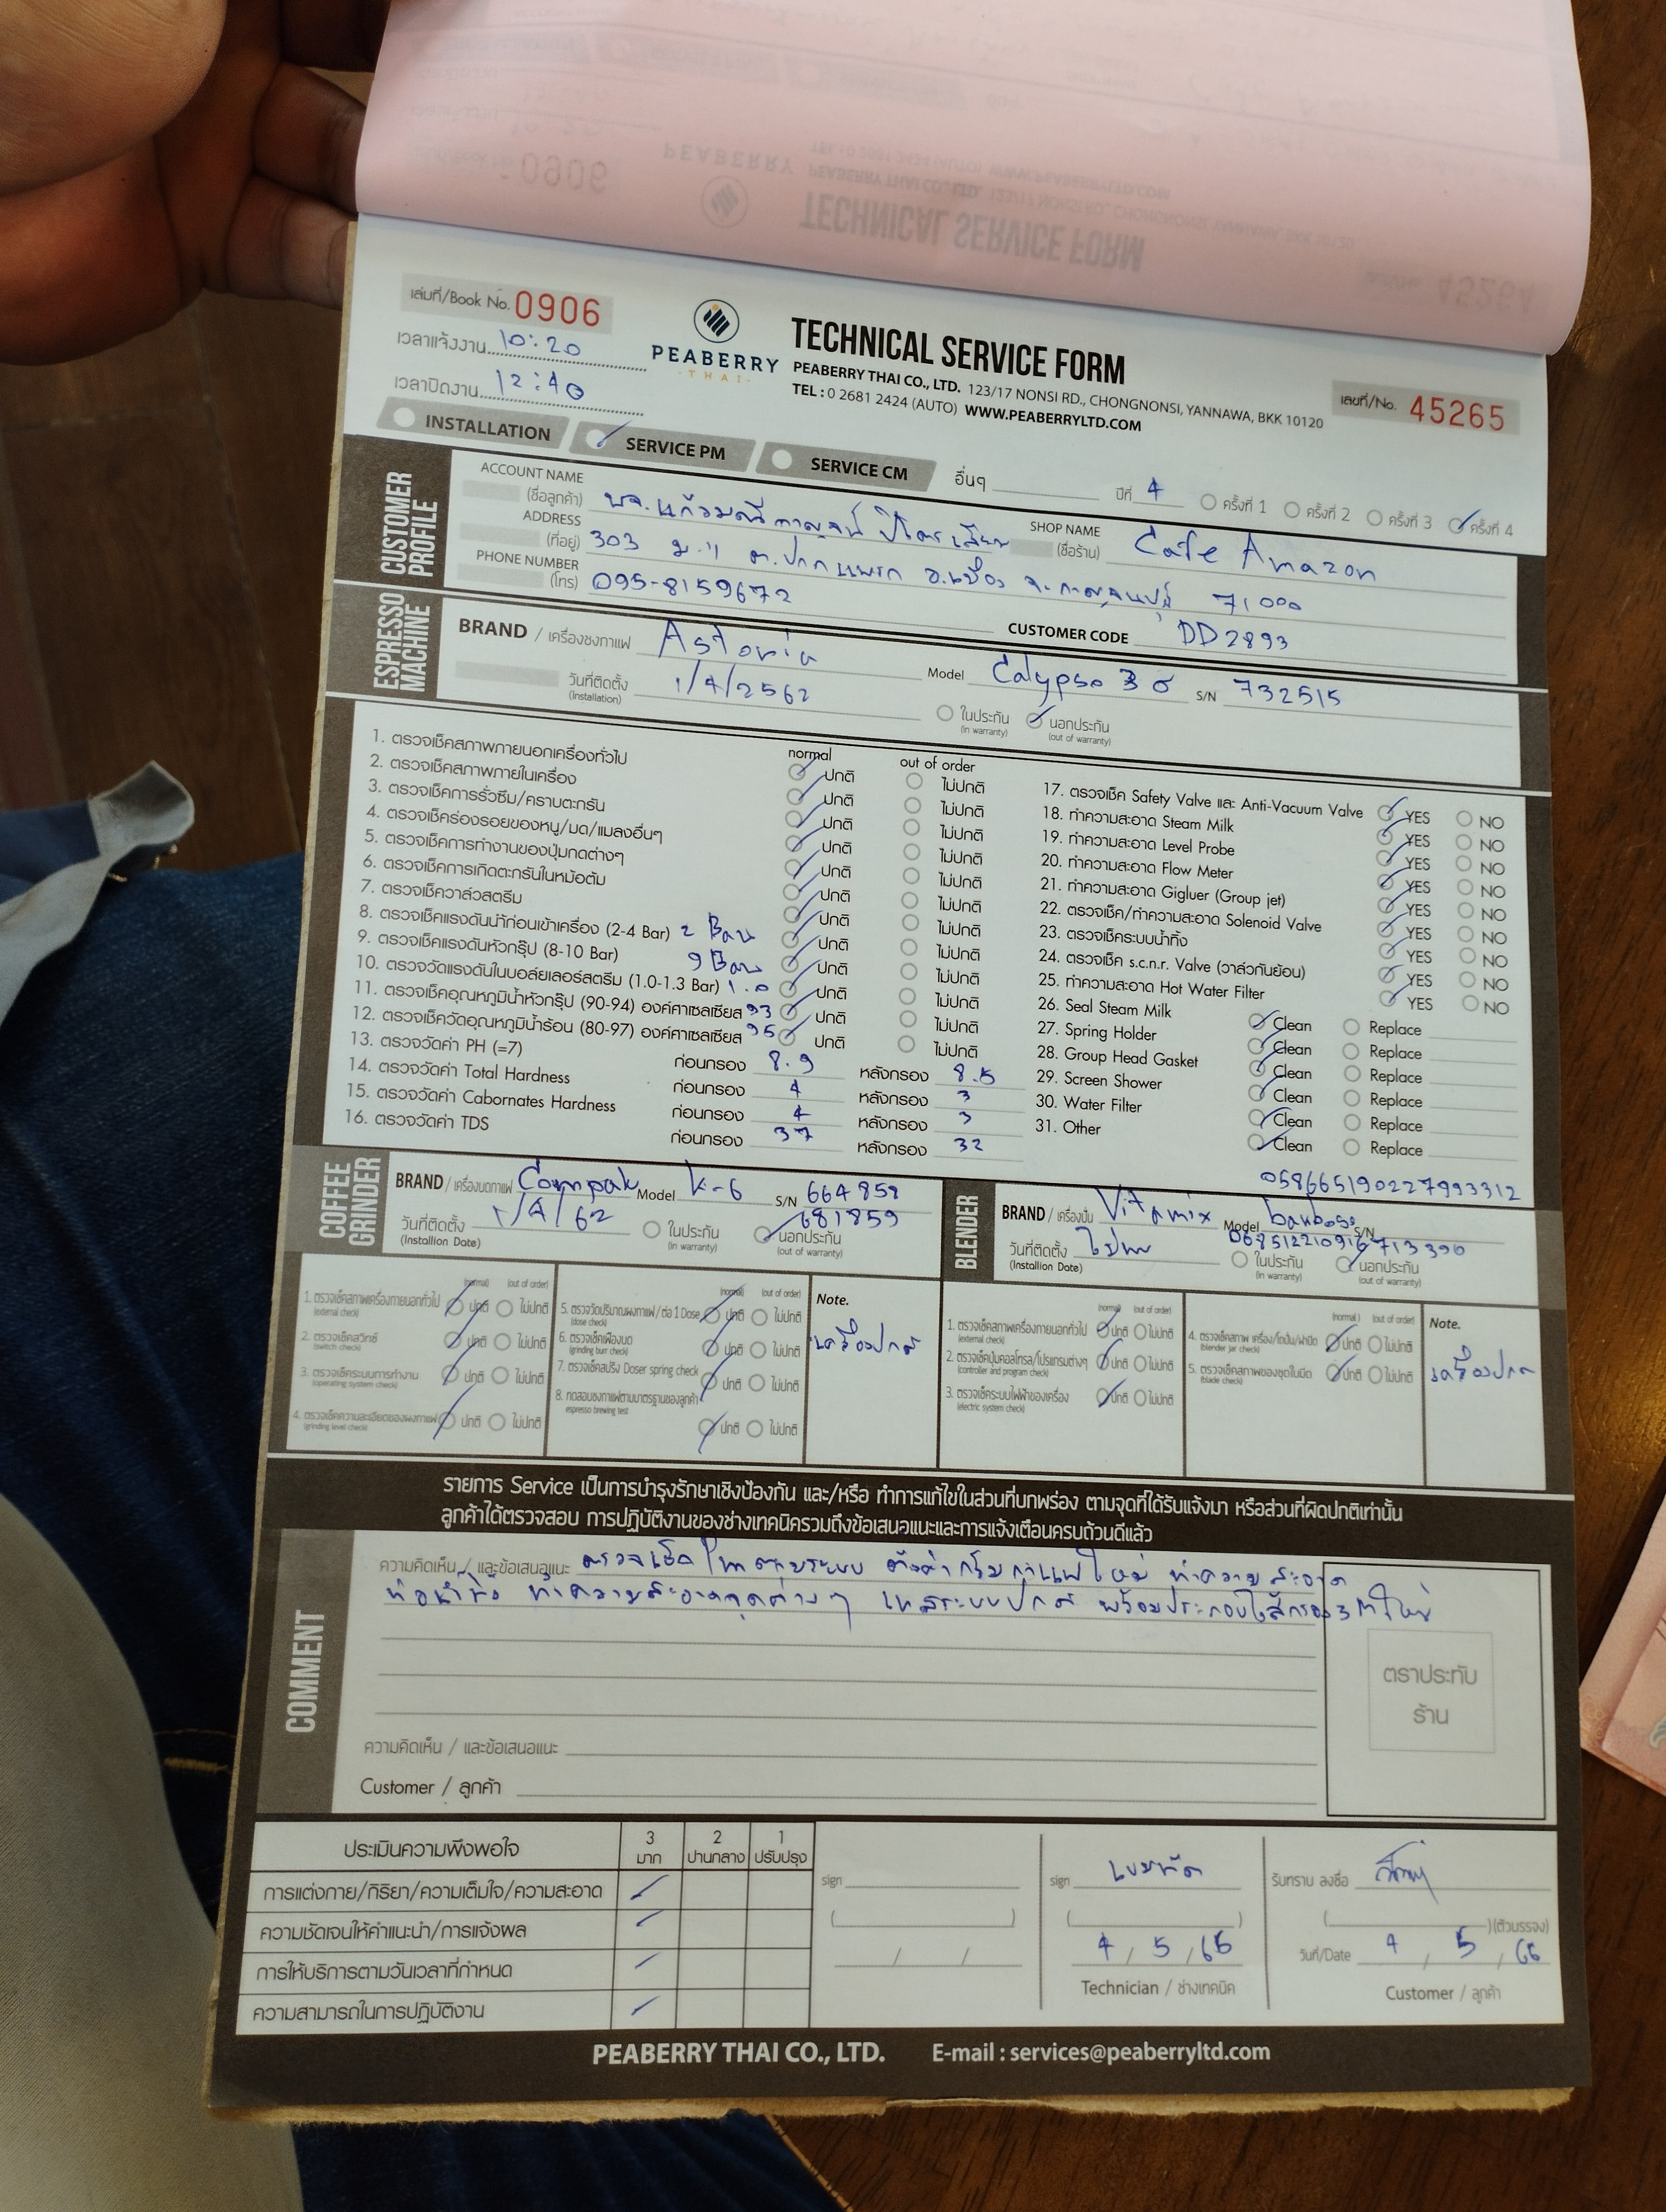 เล่มที่/Book No. 0906
เวลาแจ้งงาน 10:20
เวลาปิดงาน 12:40
PEABERRY
THAI
TECHNICAL SERVICE FORM
PEABERRY THAI CO., LTD. 123/17 NONSI RD., CHONGNONSI, YANNAWA, BKK 10120
TEL : 0 2681 2424 (AUTO) WWW.PEABERRYLTD.COM
เลขที่/No. 45265
INSTALLATION SERVICE PM SERVICE CM อื่นๆ ปีที่ 4 ครั้งที่ 1 ครั้งที่ 2 ครั้งที่ 3 ครั้งที่ 4
CUSTOMER PROFILE
ACCOUNT NAME (ชื่อลูกค้า) บจ.แก้วมณีกาญจน์ ปิโตรเลียม SHOP NAME (ชื่อร้าน) Cafe Amazon
ADDRESS (ที่อยู่) 303 ม.11 ต.ปากแพรก อ.เมือง จ.กาญจนบุรี 71000
PHONE NUMBER (โทร) 095-8159672 CUSTOMER CODE DD2893
ESPRESSO MACHINE
BRAND / เครื่องชงกาแฟ Astoria Model Calypso S/N 732515
วันที่ติดตั้ง (Installation) 1/4/2562 ในประกัน (in warranty) นอกประกัน (out of warranty)
normal out of order
1. ตรวจเช็คสภาพภายนอกเครื่องทั่วไป ปกติ ไม่ปกติ
2. ตรวจเช็คสภาพภายในเครื่อง ปกติ ไม่ปกติ
3. ตรวจเช็คการรั่วซึม/คราบตะกรัน ปกติ ไม่ปกติ
4. ตรวจเช็คร่องรอยของหนู/มด/แมลงอื่นๆ ปกติ ไม่ปกติ
5. ตรวจเช็คการทำงานของปุ่มกดต่างๆ ปกติ ไม่ปกติ
6. ตรวจเช็คการเกิดตะกรันในหม้อต้ม ปกติ ไม่ปกติ
7. ตรวจเช็ควาล์วสตรีม ปกติ ไม่ปกติ
8. ตรวจเช็คแรงดันน้ำก่อนเข้าเครื่อง (2-4 Bar) 2 Bar ปกติ ไม่ปกติ
9. ตรวจเช็คแรงดันหัวกรุ๊ป (8-10 Bar) 9 Bar ปกติ ไม่ปกติ
10. ตรวจวัดแรงดันในบอล์ยเลอร์สตรีม (1.0-1.3 Bar) 1.0 ปกติ ไม่ปกติ
11. ตรวจเช็คอุณหภูมิน้ำหัวกรุ๊ป (90-94) องค์ศาเซลเซียส 93 ปกติ ไม่ปกติ
12. ตรวจเช็ควัดอุณหภูมิน้ำร้อน (80-97) องค์ศาเซลเซียส 95 ปกติ ไม่ปกติ
13. ตรวจวัดค่า PH (=7) ก่อนกรอง 8.9 หลังกรอง 8.5
14. ตรวจวัดค่า Total Hardness ก่อนกรอง 4 หลังกรอง 3
15. ตรวจวัดค่า Cabornates Hardness ก่อนกรอง 4 หลังกรอง 3
16. ตรวจวัดค่า TDS ก่อนกรอง 37 หลังกรอง 32
17. ตรวจเช็ค Safety Valve และ Anti-Vacuum Valve YES NO
18. ทำความสะอาด Steam Milk YES NO
19. ทำความสะอาด Level Probe YES NO
20. ทำความสะอาด Flow Meter YES NO
21. ทำความสะอาด Gigluer (Group jet) YES NO
22. ตรวจเช็ค/ทำความสะอาด Solenoid Valve YES NO
23. ตรวจเช็คระบบน้ำทิ้ง YES NO
24. ตรวจเช็ค s.c.n.r. Valve (วาล์วกันย้อน) YES NO
25. ทำความสะอาด Hot Water Filter YES NO
26. Seal Steam Milk Clean Replace
27. Spring Holder Clean Replace
28. Group Head Gasket Clean Replace
29. Screen Shower Clean Replace
30. Water Filter Clean Replace
31. Other Clean Replace
COFFEE GRINDER
BRAND / เครื่องบดกาแฟ Compak Model K-6 S/N 664859
681859
วันที่ติดตั้ง (Installation Date) 1/4/62 ในประกัน (in warranty) นอกประกัน (out of warranty)
(normal) (out of order)
1. ตรวจเช็คสภาพเครื่องภายนอกทั่วไป (external check) ปกติ ไม่ปกติ
2. ตรวจเช็คสวิทซ์ (switch check) ปกติ ไม่ปกติ
3. ตรวจเช็คระบบการทำงาน (operating system check) ปกติ ไม่ปกติ
4. ตรวจเช็คความละเอียดของผงกาแฟ (grinding level check) ปกติ ไม่ปกติ
(normal) (out of order)
5. ตรวจวัดปริมาณผงกาแฟ / ต่อ 1 Dose (dose check) ปกติ ไม่ปกติ
6. ตรวจเช็คเฟืองบด (grinding burr check) ปกติ ไม่ปกติ
7. ตรวจเช็คสปริง Doser spring check ปกติ ไม่ปกติ
8. ทดสอบชงกาแฟตามมาตรฐานของลูกค้า espresso brewing test ปกติ ไม่ปกติ
Note.
เครื่องปกติ
BLENDER
058665190227993312
BRAND / เครื่องปั่น Vitamix Model S/N
068512210916713390
วันที่ติดตั้ง (Installion Date) ในประกัน (in warranty) นอกประกัน (out of warranty)
(normal) (out of order)
1. ตรวจเช็คสภาพเครื่องภายนอกทั่วไป (external check) ปกติ ไม่ปกติ
2. ตรวจเช็คปุ่มคอลโทรล/โปรแกรมต่างๆ (controller and program check) ปกติ ไม่ปกติ
3. ตรวจเช็คระบบไฟฟ้าของเครื่อง (electric system check) ปกติ ไม่ปกติ
(normal ) (out of order)
4. ตรวจเช็คสภาพ เครื่อง/โถปั่น/ฝาปิด (blender jar check) ปกติ ไม่ปกติ
5. ตรวจเช็คสภาพของชุดใบมีด (blade check) ปกติ ไม่ปกติ
Note.
เครื่องปกติ
รายการ Service เป็นการบำรุงรักษาเชิงป้องกัน และ/หรือ ทำการแก้ไขในส่วนที่บกพร่อง ตามจุดที่ได้รับแจ้งมา หรือส่วนที่ผิดปกติเท่านั้น
ลูกค้าได้ตรวจสอบ การปฏิบัติงานของช่างเทคนิครวมถึงข้อเสนอแนะและการแจ้งเตือนครบถ้วนดีแล้ว
COMMENT
ความคิดเห็น / และข้อเสนอแนะ ตรวจเช็ค ตามระบบ ตั้งค่ากรัมกาแฟใหม่ ทำความสะอาด
ท่อน้ำทิ้ง ทำความสะอาดจุดต่างๆ เทสระบบปกติ พร้อมประกอบไส้กรอง 3 ใหม่
ตราประทับ
ร้าน
ความคิดเห็น / และข้อเสนอแนะ
Customer / ลูกค้า
ประเมินความพึงพอใจ 3 มาก 2 ปานกลาง 1 ปรับปรุง
การแต่งกาย/กิริยา/ความเต็มใจ/ความสะอาด
ความชัดเจนให้คำแนะนำ/การแจ้งผล
การให้บริการตามวันเวลาที่กำหนด
ความสามารถในการปฏิบัติงาน
sign
sign
4 / 5 / 66
Technician / ช่างเทคนิค
รับทราบ ลงชื่อ
(ตัวบรรจง)
วันที่/Date 4 / 5 / 66
Customer / ลูกค้า
PEABERRY THAI CO., LTD. E-mail : services@peaberryltd.com